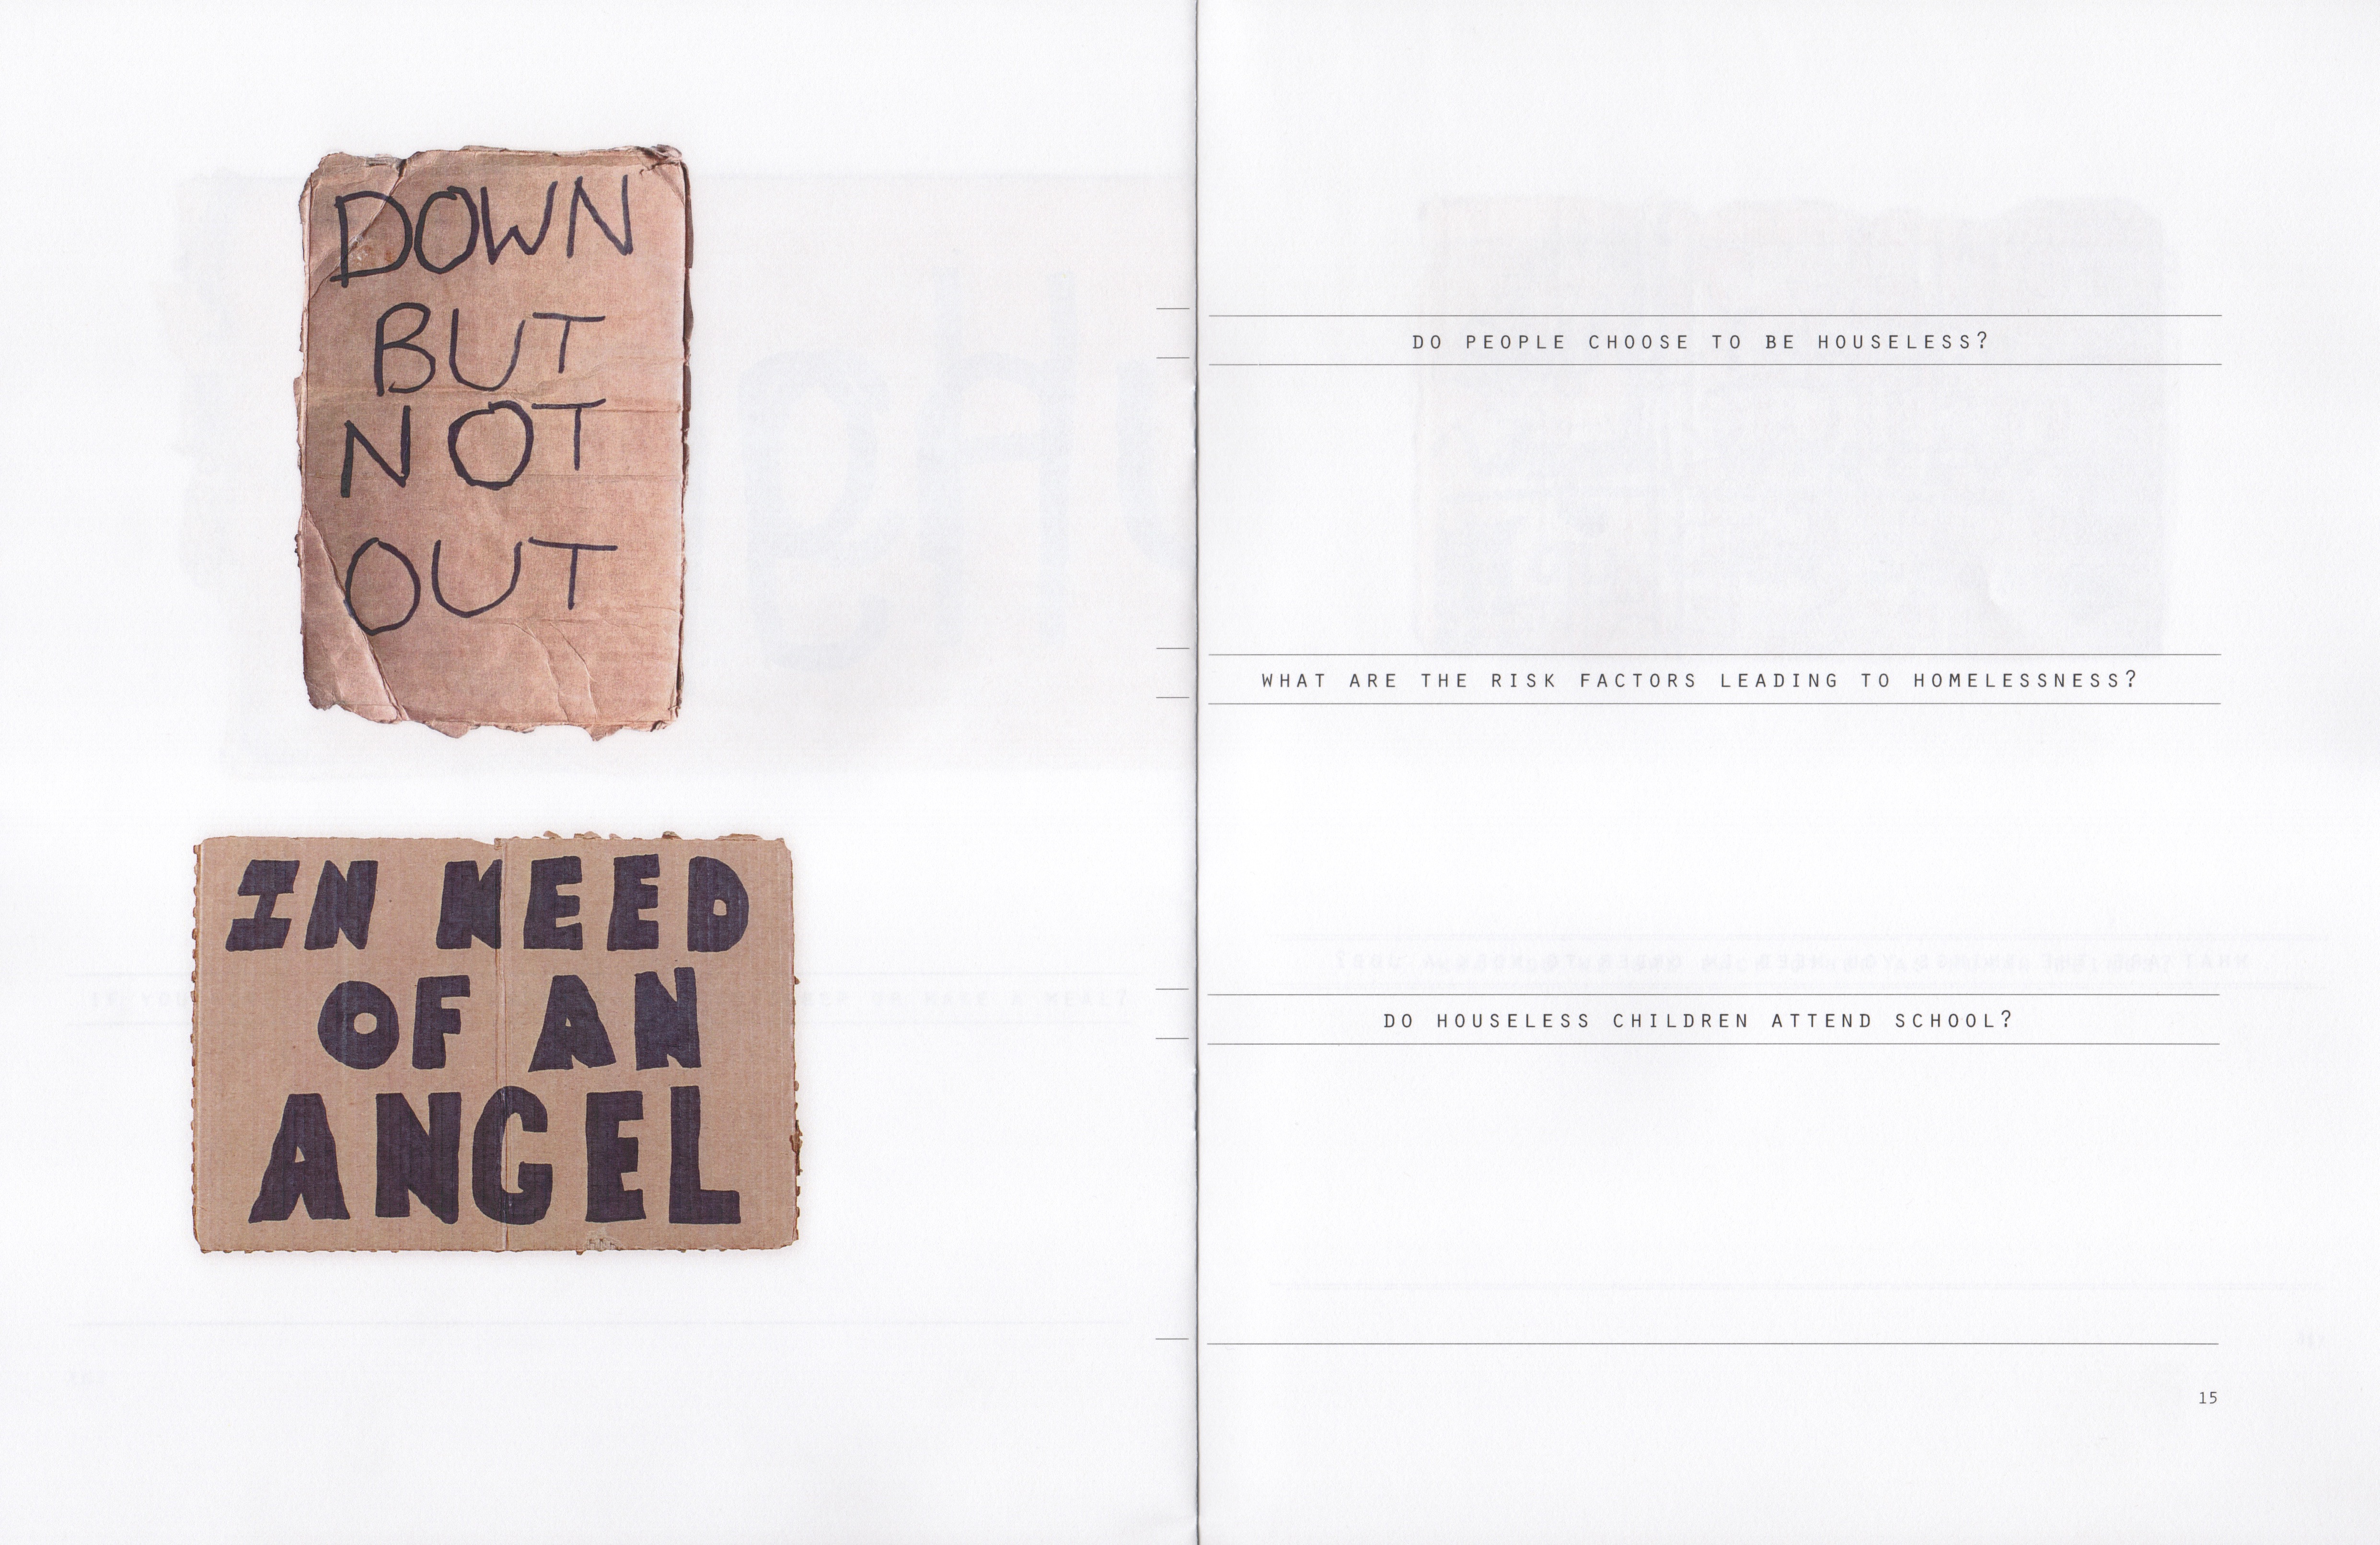 DOWN
BUT
NOT
OUT
IN NEED
OF AN
ANGEL
DO PEOPLE CHOOSE TO BE HOUSELESS?
WHAT ARE THE RISK FACTORS LEADING TO HOMELESSNESS?
DO HOUSELESS CHILDREN ATTEND SCHOOL?
15